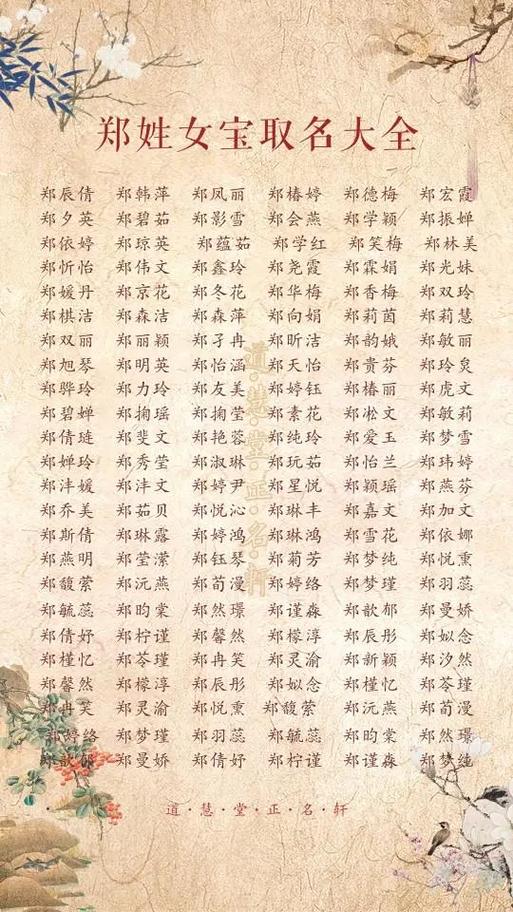 郑姓女宝取名大全
郑辰倩 郑韩萍 郑凤丽 郑椿婷 郑德梅 郑宏霞
郑夕英 郑碧茹 郑影雪 郑会燕 郑学颖 郑振婵
郑依婷 郑琼英 郑蕴茹 郑学红 郑笑梅 郑林美
郑忻怡 郑伟文 郑鑫玲 郑尧霞 郑霖娟 郑光妹
郑媛丹 郑京花 郑冬花 郑华梅 郑香梅 郑双玲
郑棋洁 郑森洁 郑森萍 郑向娟 郑莉茵 郑莉慧
郑双丽 郑丽颖 郑子冉 郑昕洁 郑韵娥 郑敏丽
郑旭琴 郑明英 郑怡涵 郑天怡 郑贵芬 郑玲炅
郑骅玲 郑力玲 郑友美 郑婷钰 郑椿丽 郑虎文
郑碧婵 郑掬瑶 郑掬莹 郑素花 郑凇文 郑敏莉
郑倩琏 郑斐文 郑艳蓉 郑纯玲 郑爱玉 郑梦雪
郑婵玲 郑秀莹 郑淑琳 郑玩茹 郑怡兰 郑玮婷
郑沣媛 郑沣文 郑婷尹 郑星悦 郑颖瑶 郑燕芬
郑乔美 郑茹贝 郑悦沁 郑琳丰 郑嘉文 郑加文
郑斯倩 郑琳露 郑婷鸿 郑琳鸿 郑雪花 郑依娜
郑燕明 郑莹潆 郑钰琴 郑菊芳 郑梦纯 郑悦熏
郑馥萦 郑沅燕 郑荀漫 郑婷络 郑梦瑾 郑羽蕊
郑毓蕊 郑昀棠 郑然璟 郑谨森 郑歆郁 郑曼娇
郑倩妤 郑柠谨 郑馨然 郑檬淳 郑辰彤 郑姒念
郑槿忆 郑苓瑾 郑冉笑 郑灵渝 郑新颖 郑汐然
郑馨然 郑檬淳 郑辰彤 郑姒念 郑槿忆 郑苓瑾
郑冉笑 郑灵渝 郑悦熏 郑馥萦 郑沅燕 郑荀漫
郑婷络 郑梦瑾 郑羽蕊 郑毓蕊 郑昀棠 郑然璟
郑歆郁 郑曼娇 郑倩妤 郑柠谨 郑谨森 郑梦纯
道·慧·堂·正·名·轩
道·慧·堂·正·名·轩